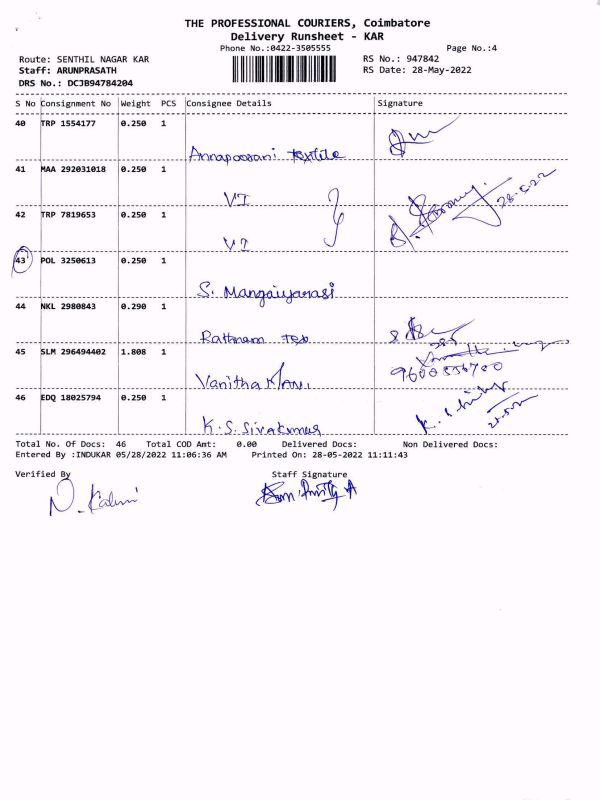 THE PROFESSIONAL COURIERS, Coimbatore
Delivery Runsheet - KAR
Phone No.:0422-3505555 Page No.:4
Route: SENTHIL NAGAR KAR RS No.: 947842
Staff: ARUNPRASATH RS Date: 28-May-2022
DRS No.: DCJB94784204
S No Consignment No Weight PCS Consignee Details Signature
40 TRP 1554177 0.250 1
Annapoorani textile
41 MAA 292031018 0.250 1
VI 28-5-22
42 TRP 7819653 0.250 1
VI
43 POL 3250613 0.250 1
S. Mangaiyarasi
44 NKL 2980843 0.290 1
Rathnam Tex
45 SLM 296494402 1.808 1
Vanitha MANI
46 EDQ 18025794 0.250 1
K.S. Sivakumar
Total No. Of Docs: 46 Total COD Amt: 0.00 Delivered Docs: Non Delivered Docs:
Entered By :INDUKAR 05/28/2022 11:06:36 AM Printed On: 28-05-2022 11:11:43
Verified By Staff Signature